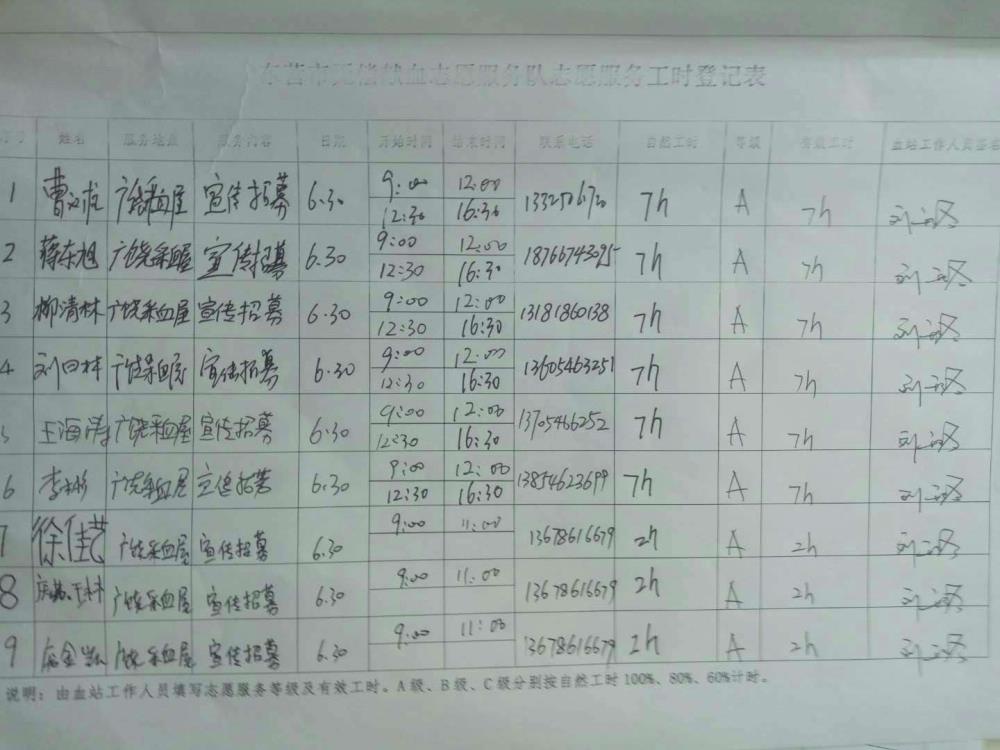 东营市无偿献血志愿服务队志愿服务工时登记表
序号 姓名 服务地点 服务内容 日期 开始时间 结束时间 联系电话 自然工时 等级 有效工时 血站工作人员签名
1 曹 广饶采血屋 宣传招募 6.30 9:00 12:00 7h A 7h 刘
12:30 16:30
2 蒋东旭 广饶采血屋 宣传招募 6.30 9:00 12:00 18766743095 7h A 7h 刘
12:30 16:30
3 柳清林 广饶采血屋 宣传招募 6.30 9:00 12:00 13181860138 7h A 7h 刘
12:30 16:30
4 刘曰林 广饶采血屋 宣传招募 6.30 9:00 12:00 13605463251 7h A 7h 刘
12:30 16:30
5 王海涛 广饶采血屋 宣传招募 6.30 9:00 12:00 13705466252 7h A 7h 刘
12:30 16:30
6 李彬 广饶采血屋 宣传招募 6.30 9:00 12:00 13854623699 7h A 7h 刘
12:30 16:30
7 徐佳艺 广饶采血屋 宣传招募 6.30 9:00 11:00 13678616679 2h A 2h 刘
8 广饶采血屋 宣传招募 6.30 9:00 11:00 13678616679 2h A 2h 刘
9 广饶采血屋 宣传招募 6.30 9:00 11:00 13678616679 2h A 2h 刘
说明：由血站工作人员填写志愿服务等级及有效工时。A级、B级、C级分别按自然工时100%、80%、60%计时。